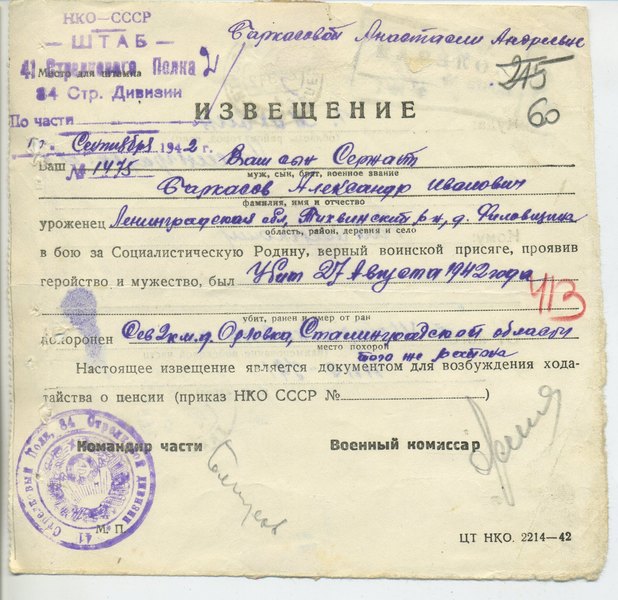 НКО—СССР
— ШТАБ —
41 Стрелкового Полка
84 Стр. Дивизии
По части
Баркасовой Анастасии Андреевне
2
215
60
ИЗВЕЩЕНИЕ
Сентября 1942 г.
№ 1475
Ваш Ваш сын Сержант
муж, сын, брат, военное звание
Баркасов Александр Иванович
фамилия, имя и отчество
уроженец Ленинградская обл, Тихвинский р-н, д. Филовщина
область, район, деревня и село
в бою за Социалистическую Родину, верный воинской присяге, проявив
геройство и мужество, был Убит 27 Августа 1942 года
413
убит, ранен и умер от ран
похоронен Сев 2км.д. Орловка, Сталинградской области
место похорон
того же района
Настоящее извещение является документом для возбуждения хода-
тайства о пенсии (приказ НКО СССР № )
Командир части Военный комиссар
41 Стрелковый Полк, 84 Стрелковой дивизии
М. П.
ЦТ НКО. 2214—42